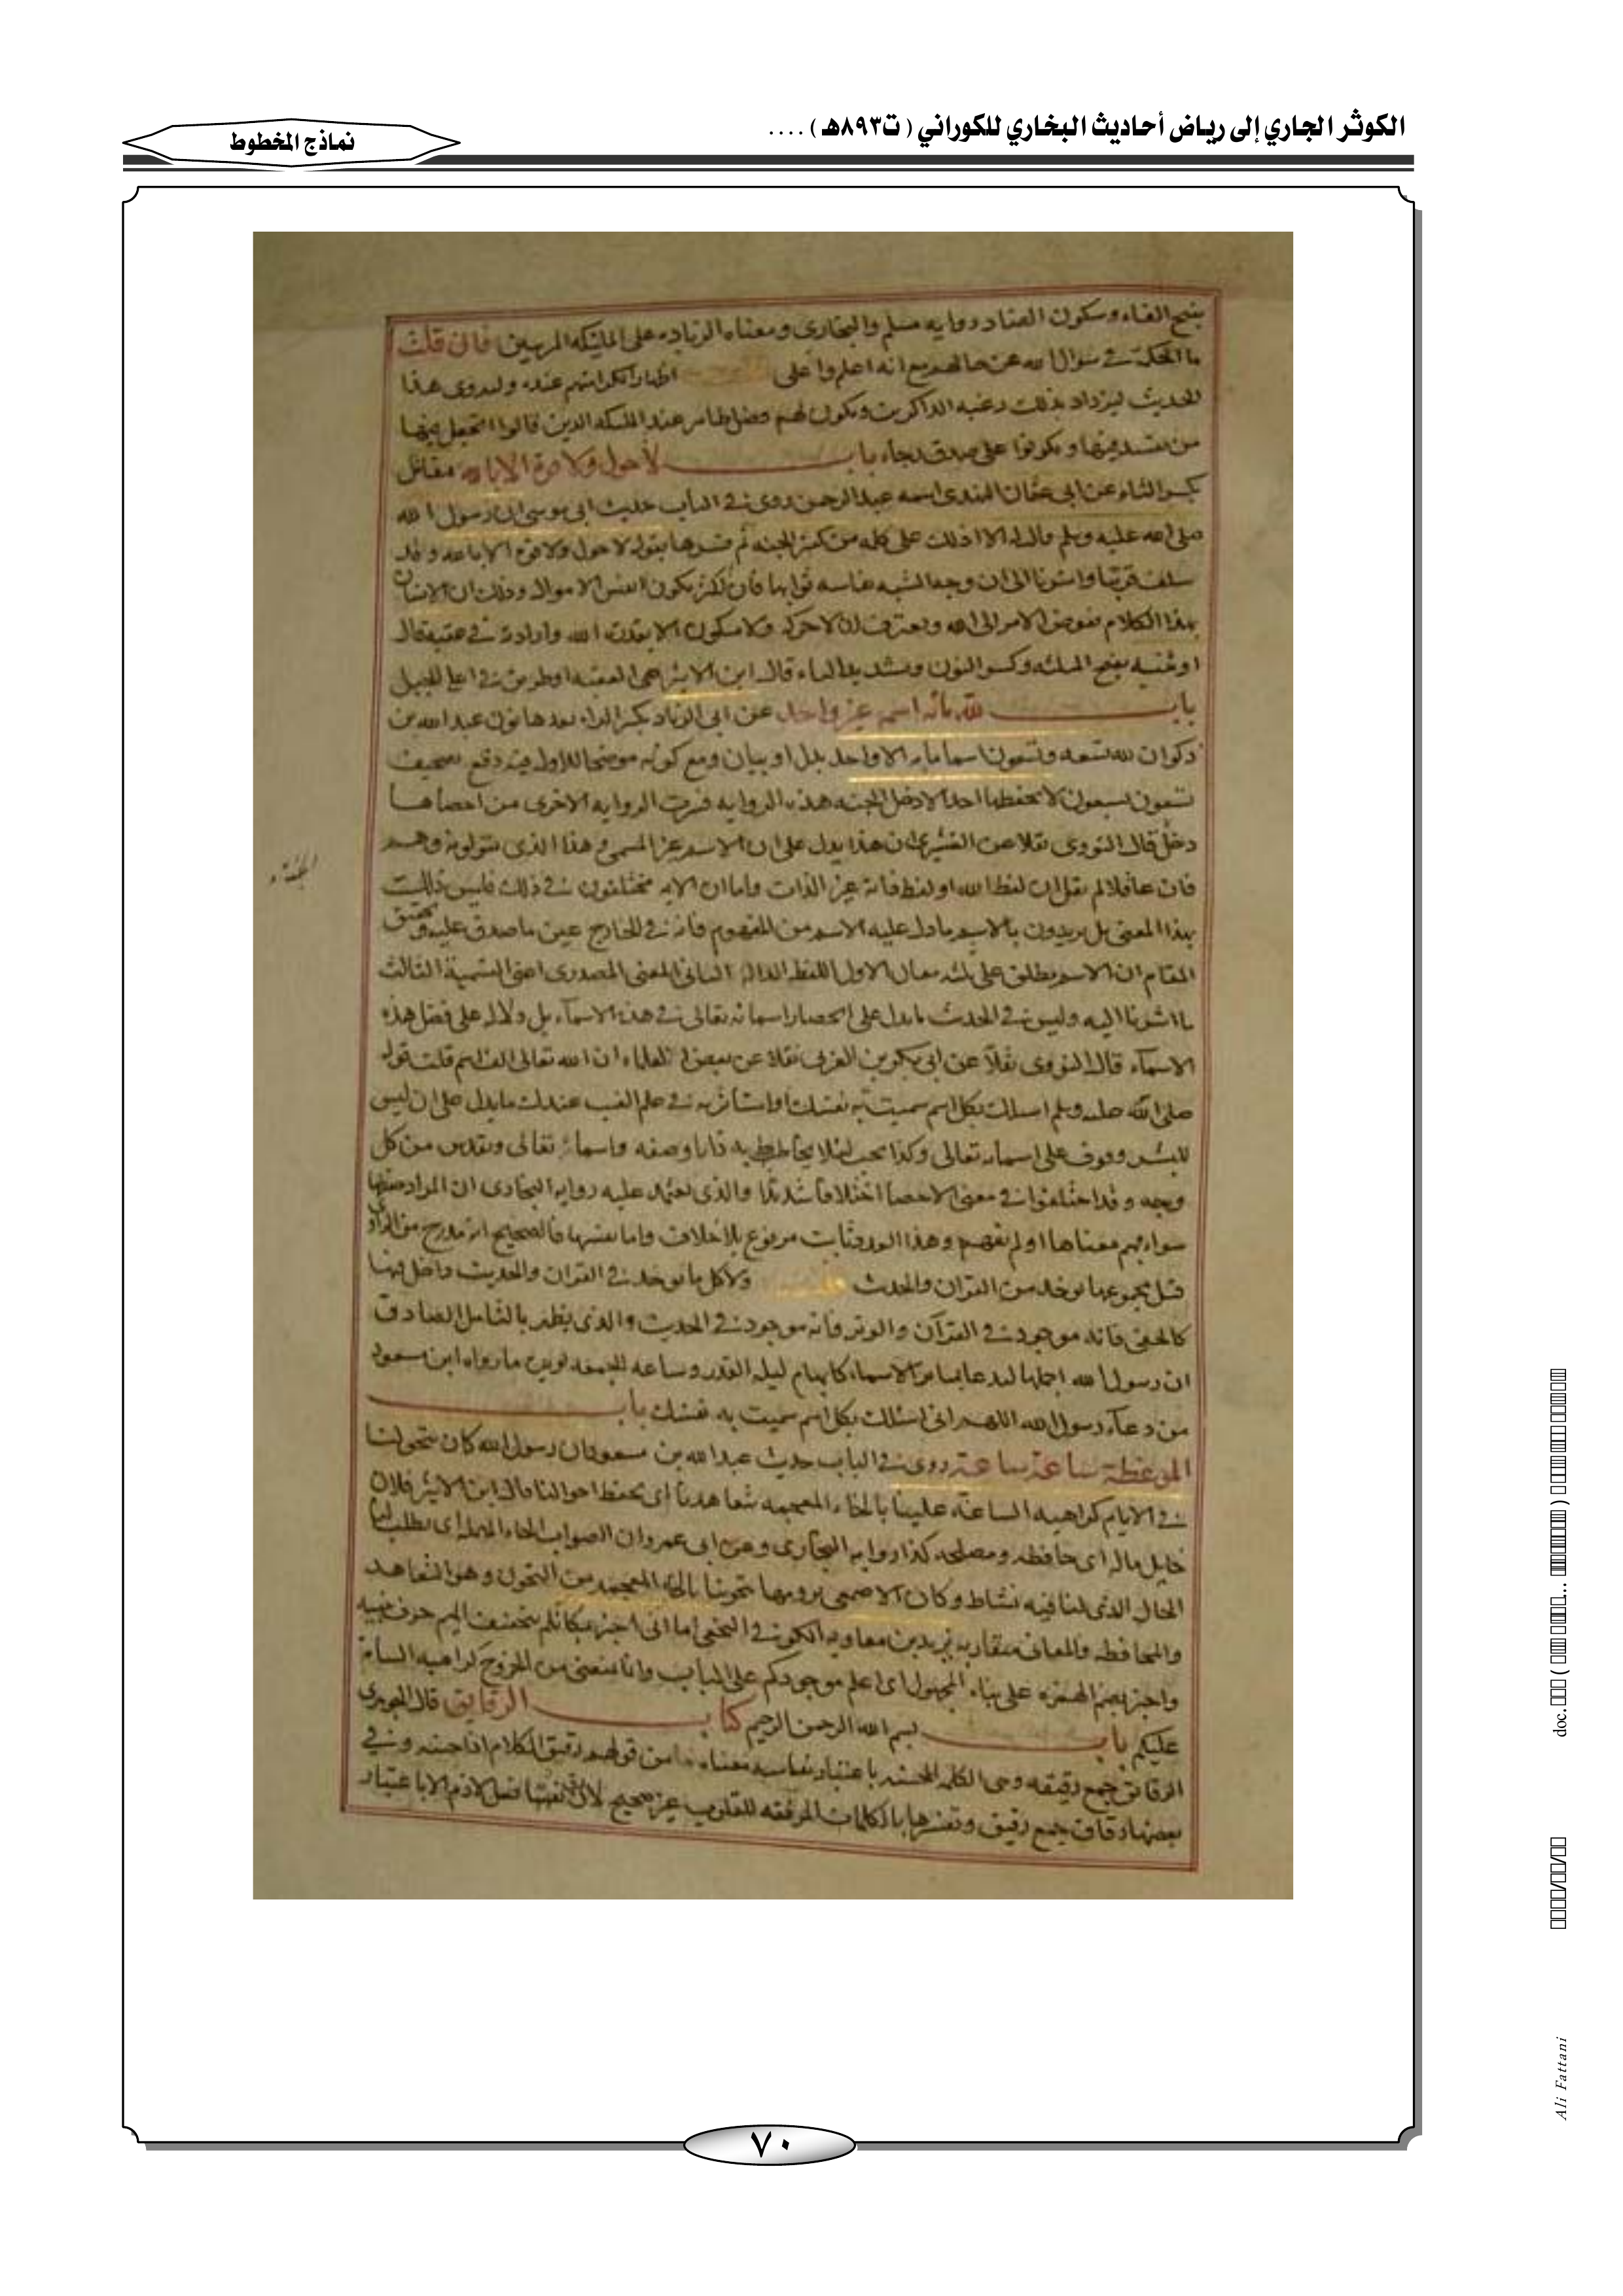 الكوثر الجاري إلى رياض أحاديث البخاري للكوراني ( ت٨٩٣هـ ) ....
نماذج المخطوط
بفتح الفاء وسكون الضاد رواية مسلم والبخارى ومعناه الزياده على الملئكه المرتبين فان قلت
ما الحكمة في سؤال الله عن حالهم مع انه اعلم واعلى اظهارا لكرامتهم عنده وليروى هذا
الحديث ليزداد بذلك رغبه الذاكرين ويكون لهم فضل ظاهر عند الملئكه الذين قالوا اتجعل فيها
من يفسد فيها ويكونوا على صدق رجاء باب لا حول ولا قوة الا بالله مقاتل
بكسر التاء عن ابى عثمان النهدى اسمه عبد الرحمن روى في الباب حديث ابى موسى ان رسول الله
صلى الله عليه وسلم قال له الا ادلك على كلمه من كنز الجنه ثم فسرها بقوله لا حول ولا قوة الا بالله وقد
سلف قريبا واشرنا الى ان وجه الشبه نفاسه ثوابها فان الكنز يكون انفس الاموال وذلك ان الانسان
بهذا الكلام يفوض الامر الى الله ويعترف ان لا حركة ولا سكون الا بقدرة الله وارادته في عقبة قال
او ثنيه بفتح المثلثه وكسر النون وتشديد الياء قال ابن الاثير هى العقبه او طريق في اعلى الجبل
باب لله مائه اسم غير واحد عن ابى الزناد بكسر الزاء بعدها نون عبد الله بن
ذكوان لله تسعه وتسعون اسما مايه الا واحد بدل او بيان ومع كونه موضحا للاول فيه دفع تصحيف
تسعون بسبعون لا يحفظها احد الا دخل الجنه هذه الروايه فسرت الروايه الاخرى من احصاها
دخل قال النووى نقلا عن القشيرى ان هذا يدل على ان الاسم عين المسمى وهذا الذى يقولونه وهم
فان عاقلا لم يقل ان لفظ الله او لفظ فانه عين الذات واما ان الايه مختلفون في ذلك فليس ذلك
بهذا المعنى بل يريدون بالاسم ما دل عليه الاسم من المفهوم فانه في الخارج عين ما صدق عليه وتحقيق
المقام ان الاسم يطلق على ثلثه معان الاول اللفظ الدال الثانى المعنى المصدرى اعنى التسمية الثالث
ما اشرنا اليه وليس في الحدث ما يدل على انحصار اسمائه تعالى في هذه الاسماء بل دلاله على فضل هذه
الاسماء قال النووى نقلا عن ابى بكر بن العربى نقلا عن بعض العلماء ان الله تعالى الف اسم قلت قوله
صلى الله عليه وسلم اسئلك بكل اسم سميت به نفسك او استاثرت به في علم الغيب عندك ما يدل على ان ليس
للبشر وقوف على اسمائه تعالى وكذا يجب لئلا يحاط به ذاتا وصفه واسماؤه تعالى وتقدس من كل
وجه وقد اختلفوا في معنى الاحصا اختلافا شديدا والذى يعتمد عليه رواية البخارى ان المراد حفظها
سواء فهم معناها او لم يفهم وهذا العدد ثابت مرفوع بلا خلاف واما تفسيرها فالصحيح انه مدرج من الراو
قيل مجموعها يوخذ من القران والحدث ولا كل ما يوخذ في القران والحديث داخل فيها
كالحفى فانه موجود في القرآن والوتر فانه موجود في الحديث والذى يظهر بالتامل الصادق
ان رسول الله اجملها ليدعا بسائر الاسماء كابهام ليله القدر وساعه الجمعه يويده ما رواه ابن مسعود
من دعاء رسول الله اللهم انى اسئلك بكل اسم سميت به نفسك باب
الموعظة ساعة ساعة روى في الباب حديث عبد الله بن مسعود ان رسول الله كان يتخولنا
في الايام كراهيه السامه علينا بالخاء المعجمه يتعاهدنا اى يحفظ احوالنا قال ابن الاثير فلان
خايل مال اى حافظه ومصلحه كذا روايه البخارى وعن ابى عمرو ان الصواب الحاء المهمله اى يطلب لنا
الحال الذى لنا فيه نشاط وكان الاصمعى يرويها يتخوننا بالخاء المعجمه من التخون وهو التعاهد
والمحافظه والمعانى متقاربه يزيد بن معاويه الكوفى النخعى اما انى اخبر بمكانكم بتخفيف الميم حرف تنبيه
واخبر بضم الهمزه على بناء المجهول اى اعلم موجودكم على الباب وانا يمنعنى من الخروج كراهيه السامه
عليكم باب بسم الله الرحمن الرحيم كتاب الرقايق قال الجوهرى
الرقائق جمع رقيقه وهى الكلمه الحسنه باعتبار نفاسه معناه من قولهم رقيق الكلام اذا حسنه وفي
بعضها رقاق جمع رقيق وتفسيرها بالكلمات المرققه للقلوب غير صحيح لان رقتها فعل لازم الا باعتبار
الجنة
٧٠
Ali Fattani
doc.